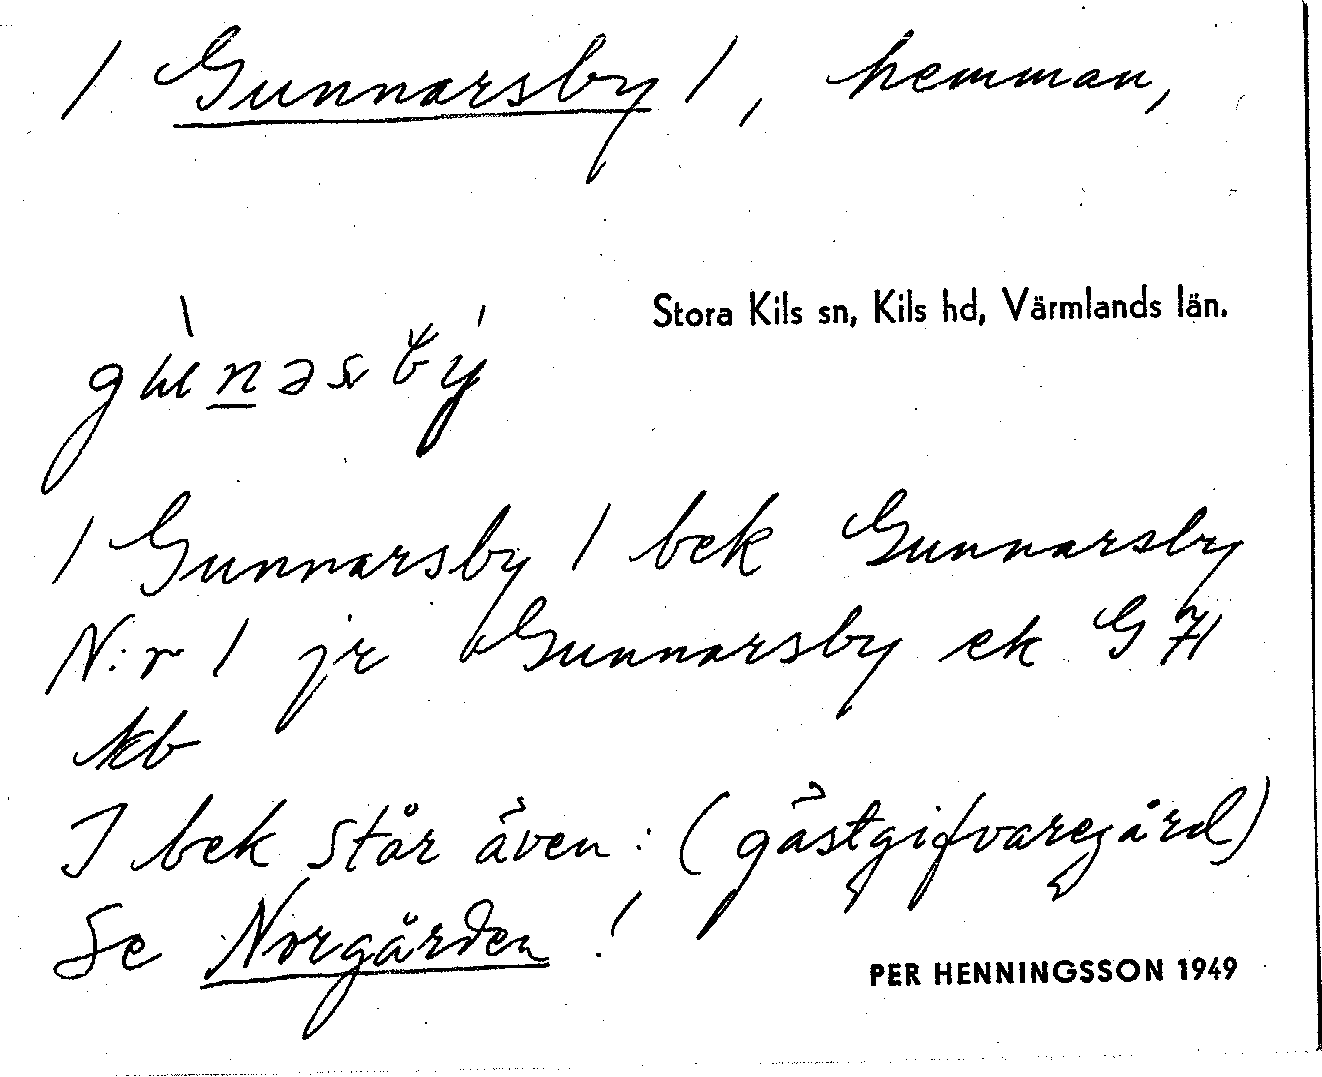 / Gunnarsby /, hemman,
Stora Kils sn, Kils hd, Värmlands län.
/ Gunnarsby / bek Gunnarsby
N:r 1 jr Gunnarsby ek G H
kb
I bek står även: (gästgifvaregård)
Se Norgården!
PER HENNINGSSON 1949